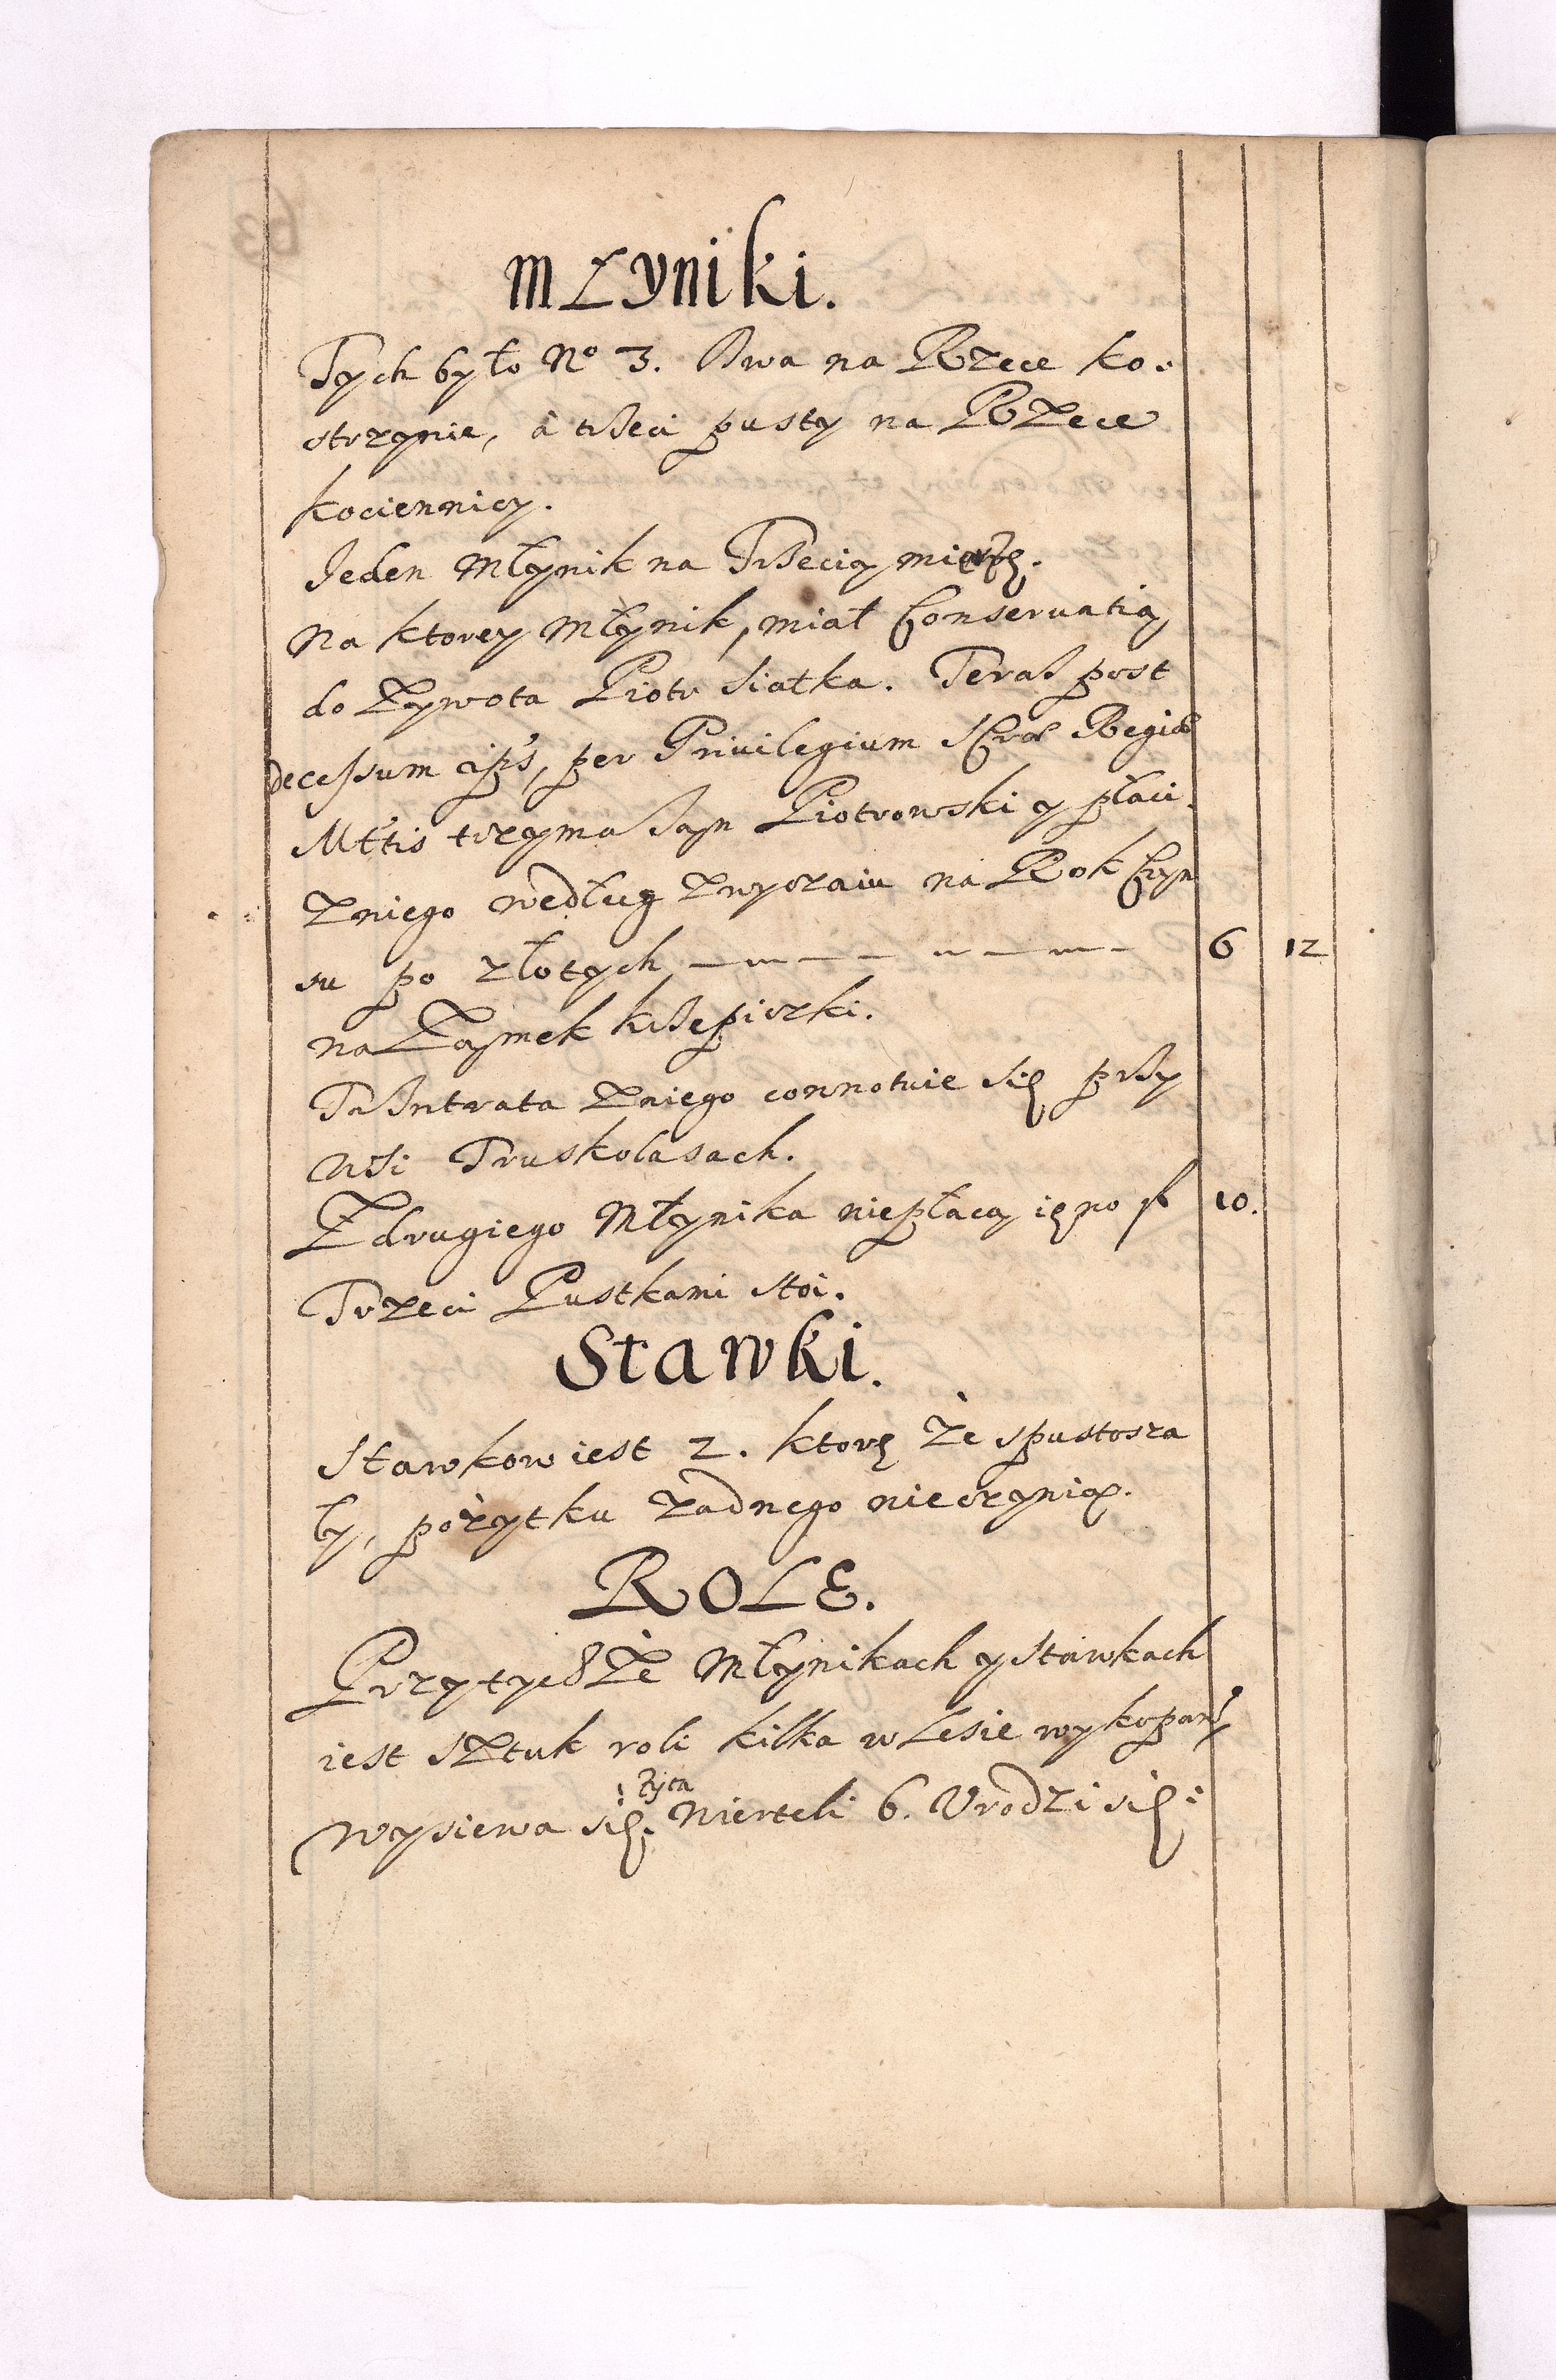 MŁyniki.
Tych było No 3. Dwa na Rzece ko.
strzynie, à trzeci pusty na Rzece
kociennicy.
Jeden Młynik na Trzecią miarę.
Na ktorey Młynik, miał Conseruatią
do Zywota Piotr Siatka. Teraz post
decessum eips, per Priuilegium SCræ Regiæ
Mttis trzyma Jan Piotrowski y płaci.
Zniego według Zwyczaiu na Rok Czyn
su po złotych 6 12
na Zamek krzepiczki.
Ta Intrata Zniego connotuie się przy
wsi Truskolasach.
Z drugiego Młynika niepłacą ięno f 10.
Trzeci Pustkami stoi.
Stawki.
Stawkow iest 2. ktorę Że spustosza
ły, pożytku Żadnego nieczynią.
ROLE.
Przytychże Młynikach y Stawkach
iest Sztuk roli kilka w Lesie wykopanÿ
Wysiewa się. Żyta Wierteli 6. Vrodzi się: